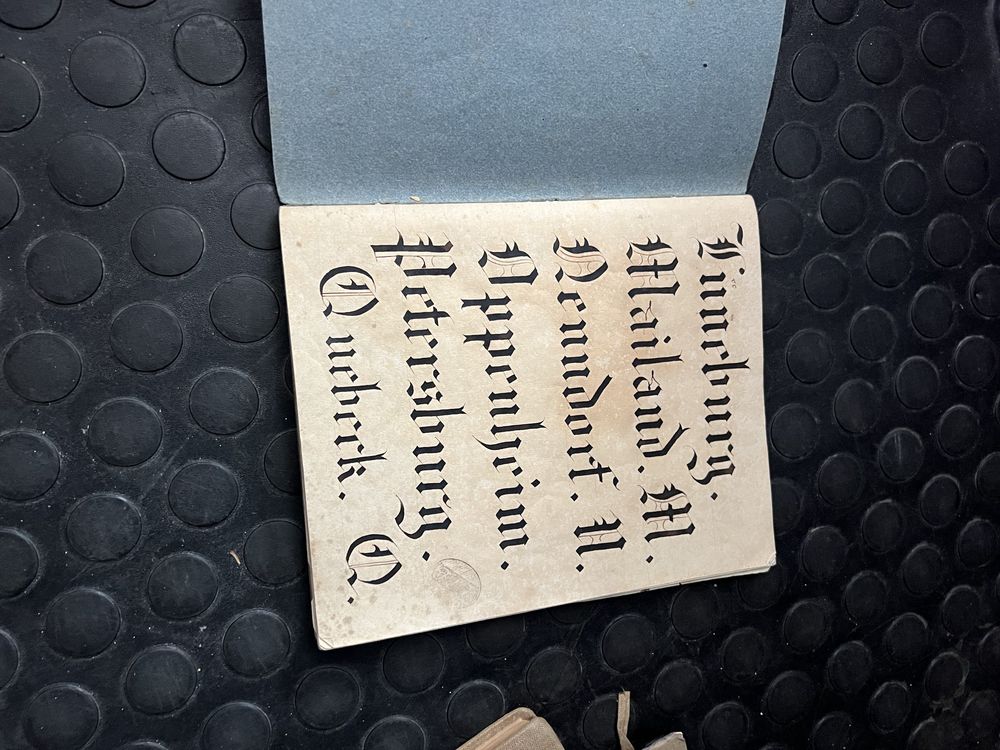 Lüneburg.
Mailand. M.
Nenndorf. N.
Oppenheim.
Petersburg.
Quebeck. Q.